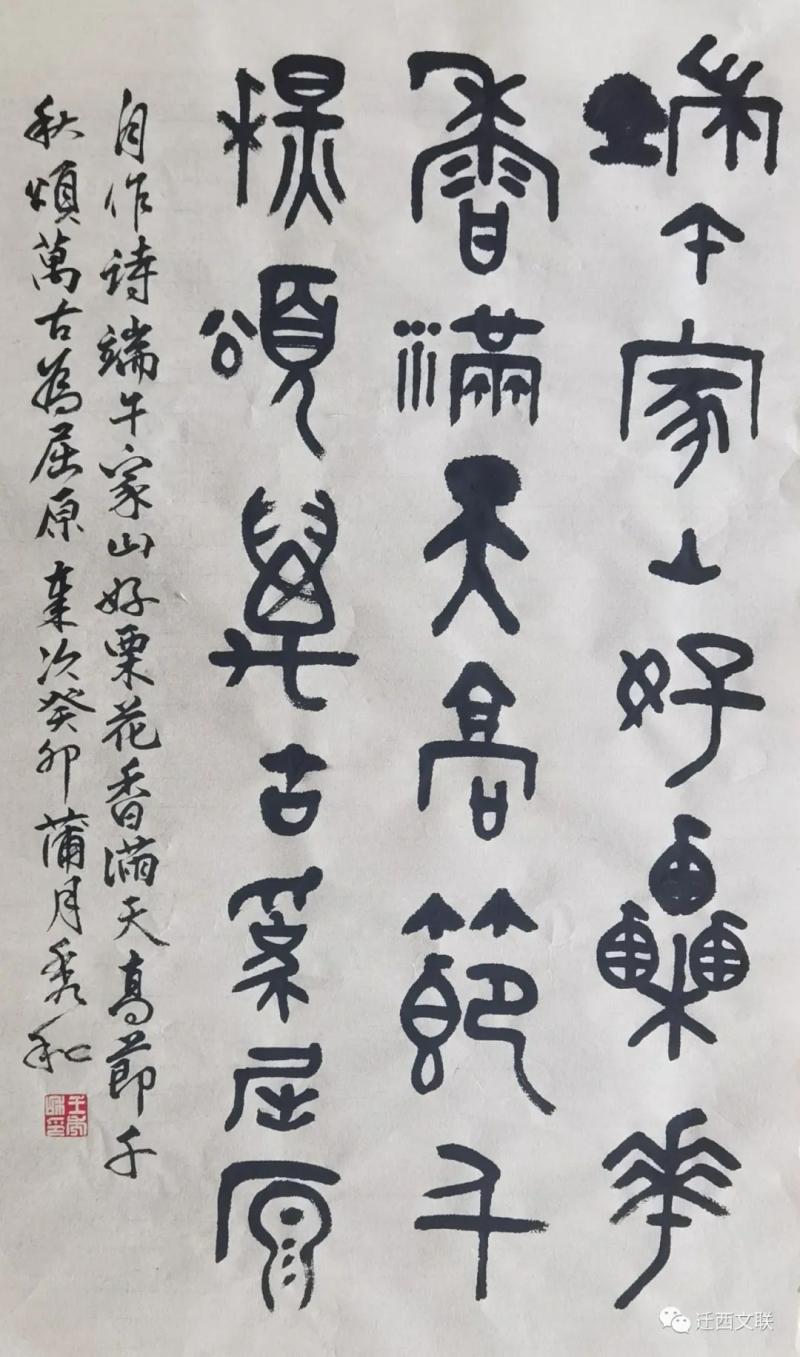 端午家山好栗花
香滿天高節千
秋頌萬古為屈原
自作诗端午家山好栗花香满天高節千
秋頌萬古為屈原 歲次癸卯蒲月秀和
迁西文联